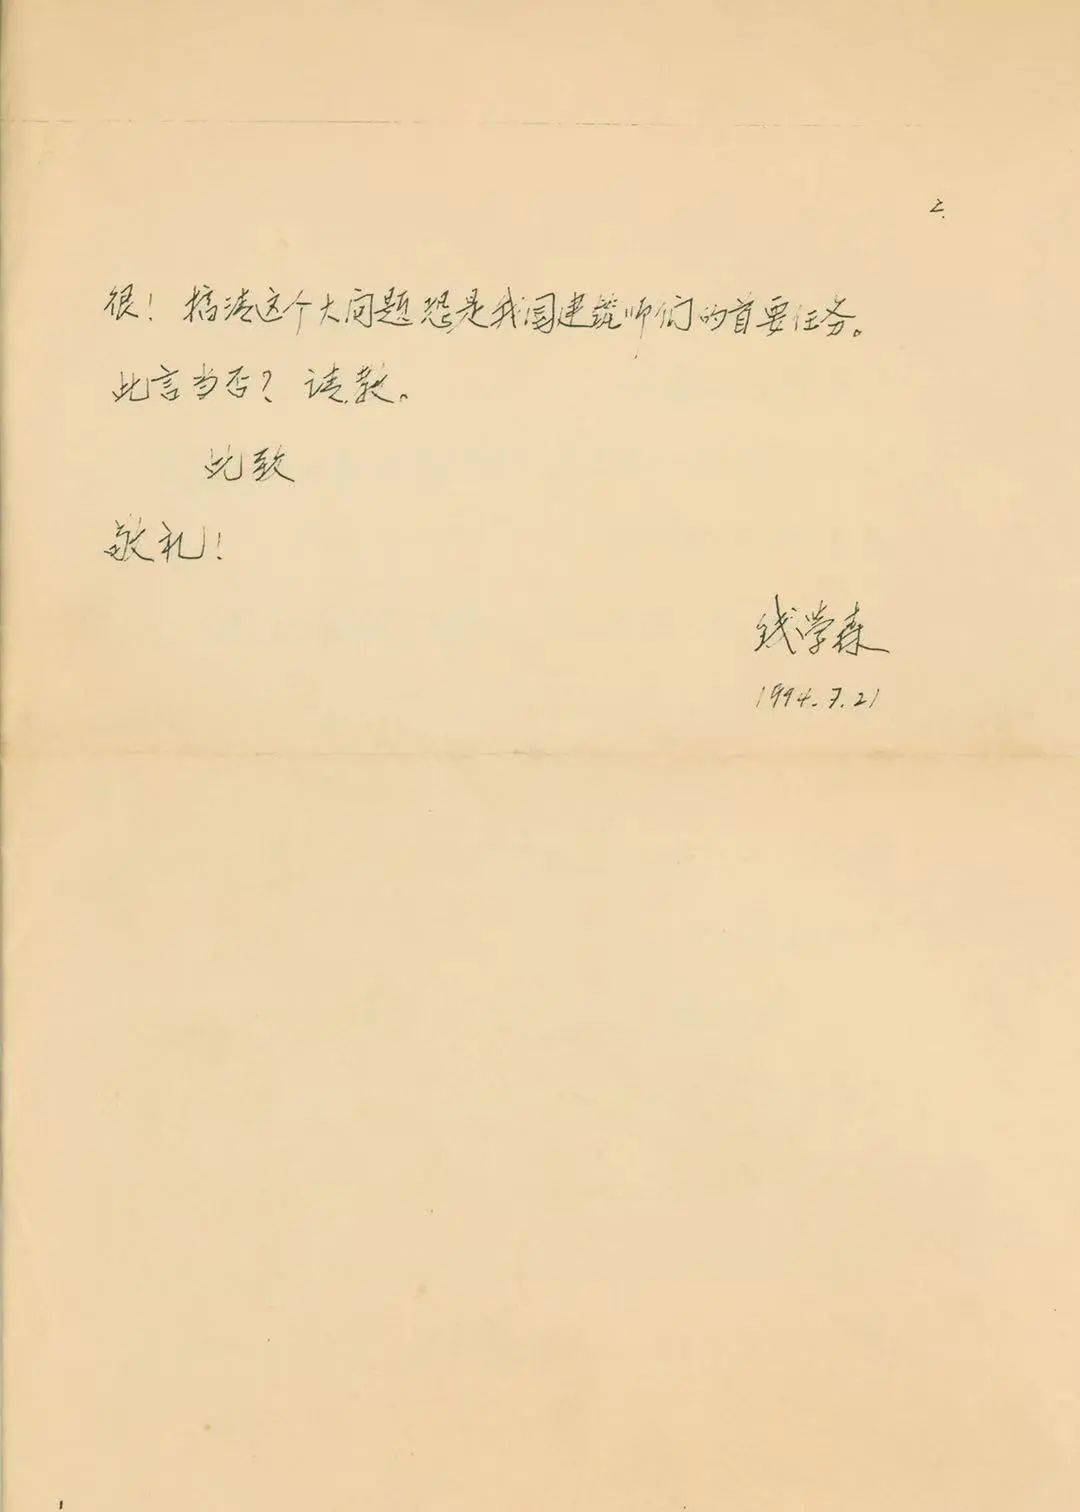 2.
很！搞清这个大问题恐是我国建筑师们的首要任务。
此言当否？请教。
此致
敬礼！
钱学森
1994.7.21